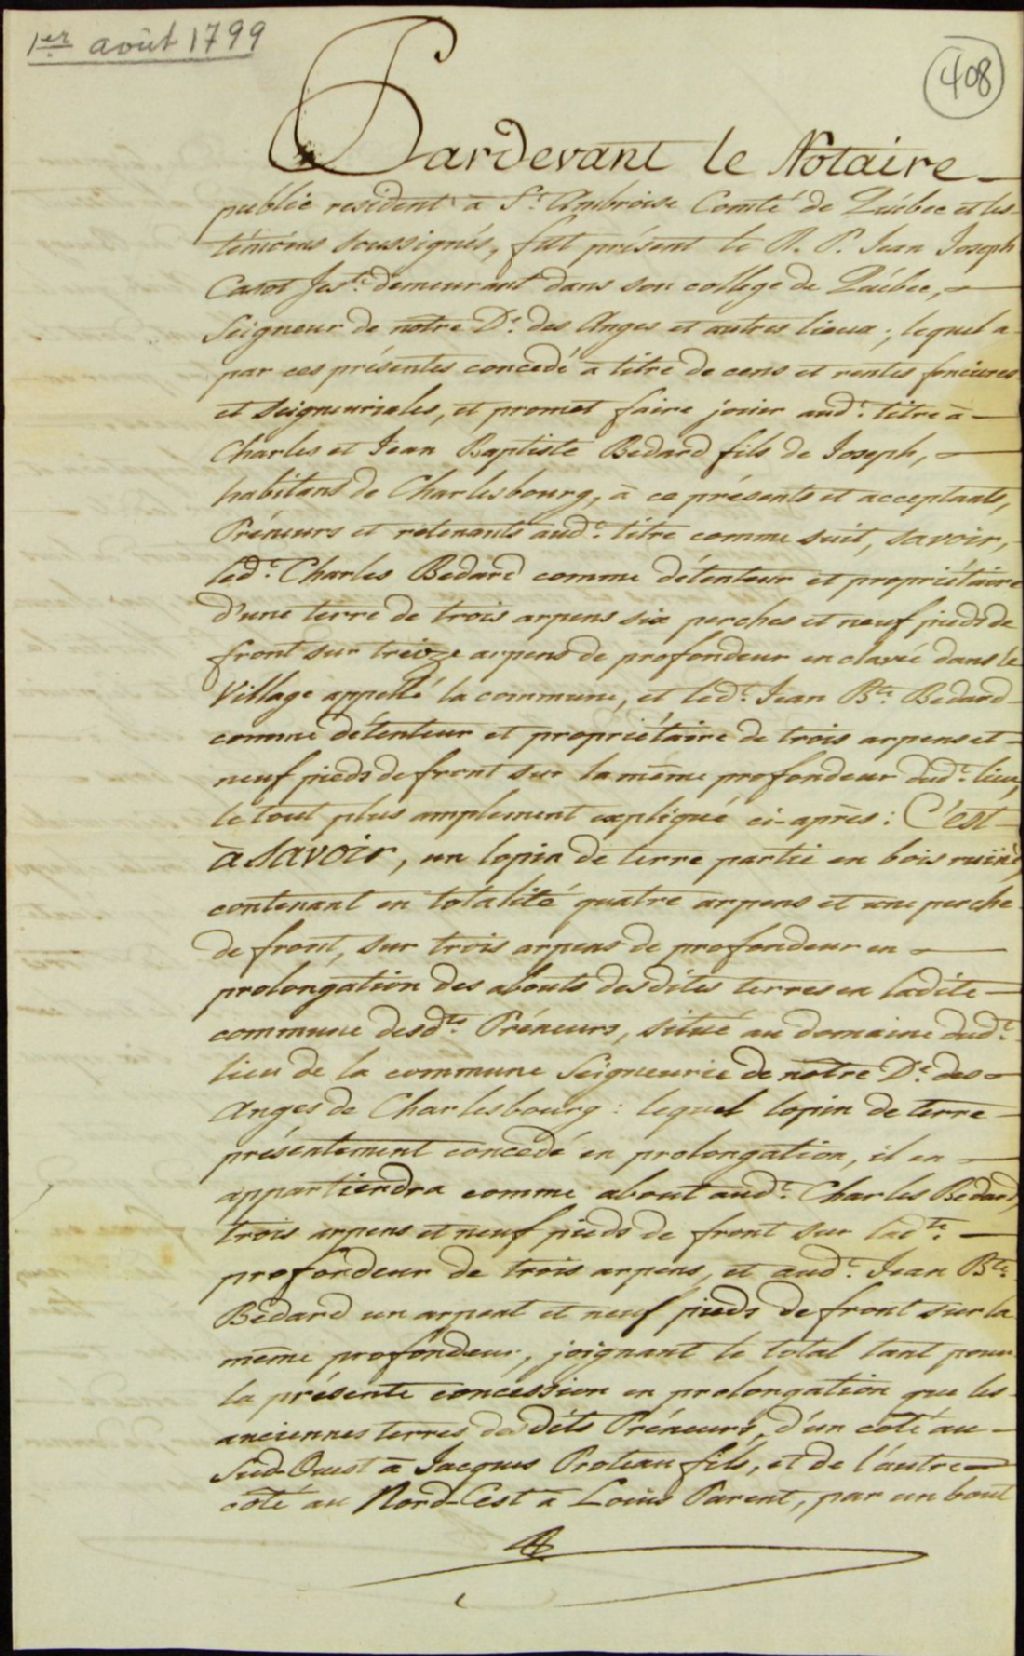 1er août 1799
408
Pardevant le Notaire
public resident à St. Ambroise Comté de Québec et les
témoins soussignés, fût présent le R. P. Jean Joseph
Casot Jest. demeurant dans son college de Québec,
Seigneur de notre De. des Anges et autres lieux; lequel a
par ces présentes concedé a titre de cens et rentes foncieres
et seigneuriales, et promet faire jouir aud.t titre à
Charles et Jean Baptiste Bedard fils de Joseph,
habitans de Charlesbourg, à ce présents et acceptants,
Préneurs et retenants aud.t titre comme suit, savoir,
led.t Charles Bedard comme détenteur et propriétaire
d'une terre de trois arpens six perches et neuf pieds de
front sur treize arpens de profondeur enclavée dans le
Village appellé la commune, et led.t Jean Bte. Bedard
comme détenteur et propriétaire de trois arpens et
neuf pieds de front sur la même profondeur dud.t lieu,
le tout plus amplement expliqué ci-après: C'est
à savoir, un lopin de terre partie en bois ruiné,
contenant en totalité quatre arpens et une perche
de front, sur trois arpens de profondeur en
prolongation des abouts desdites terres en ladite
commune desd.ts Préneurs, situé au domaine dud.t
lieu de la commune Seigneurie de notre De. des
Anges de Charlesbourg: lequel lopin de terre
présentement concedé en prolongation, il en
appartiendra comme about aud.t Charles Bedard,
trois arpens et neuf pieds de front sur lad.te
profondeur de trois arpens, et aud.t Jean Bte.
Bedard un arpent et neuf pieds de front sur la
même profondeur, joignant le total tant pour
la présente concession en prolongation que les
anciennes terres desdits Préneurs, d'un coté au
Sud-Ouest à Jacques Proteau fils, et de l'autre
coté au Nord-Est à Louis Parent, par un bout